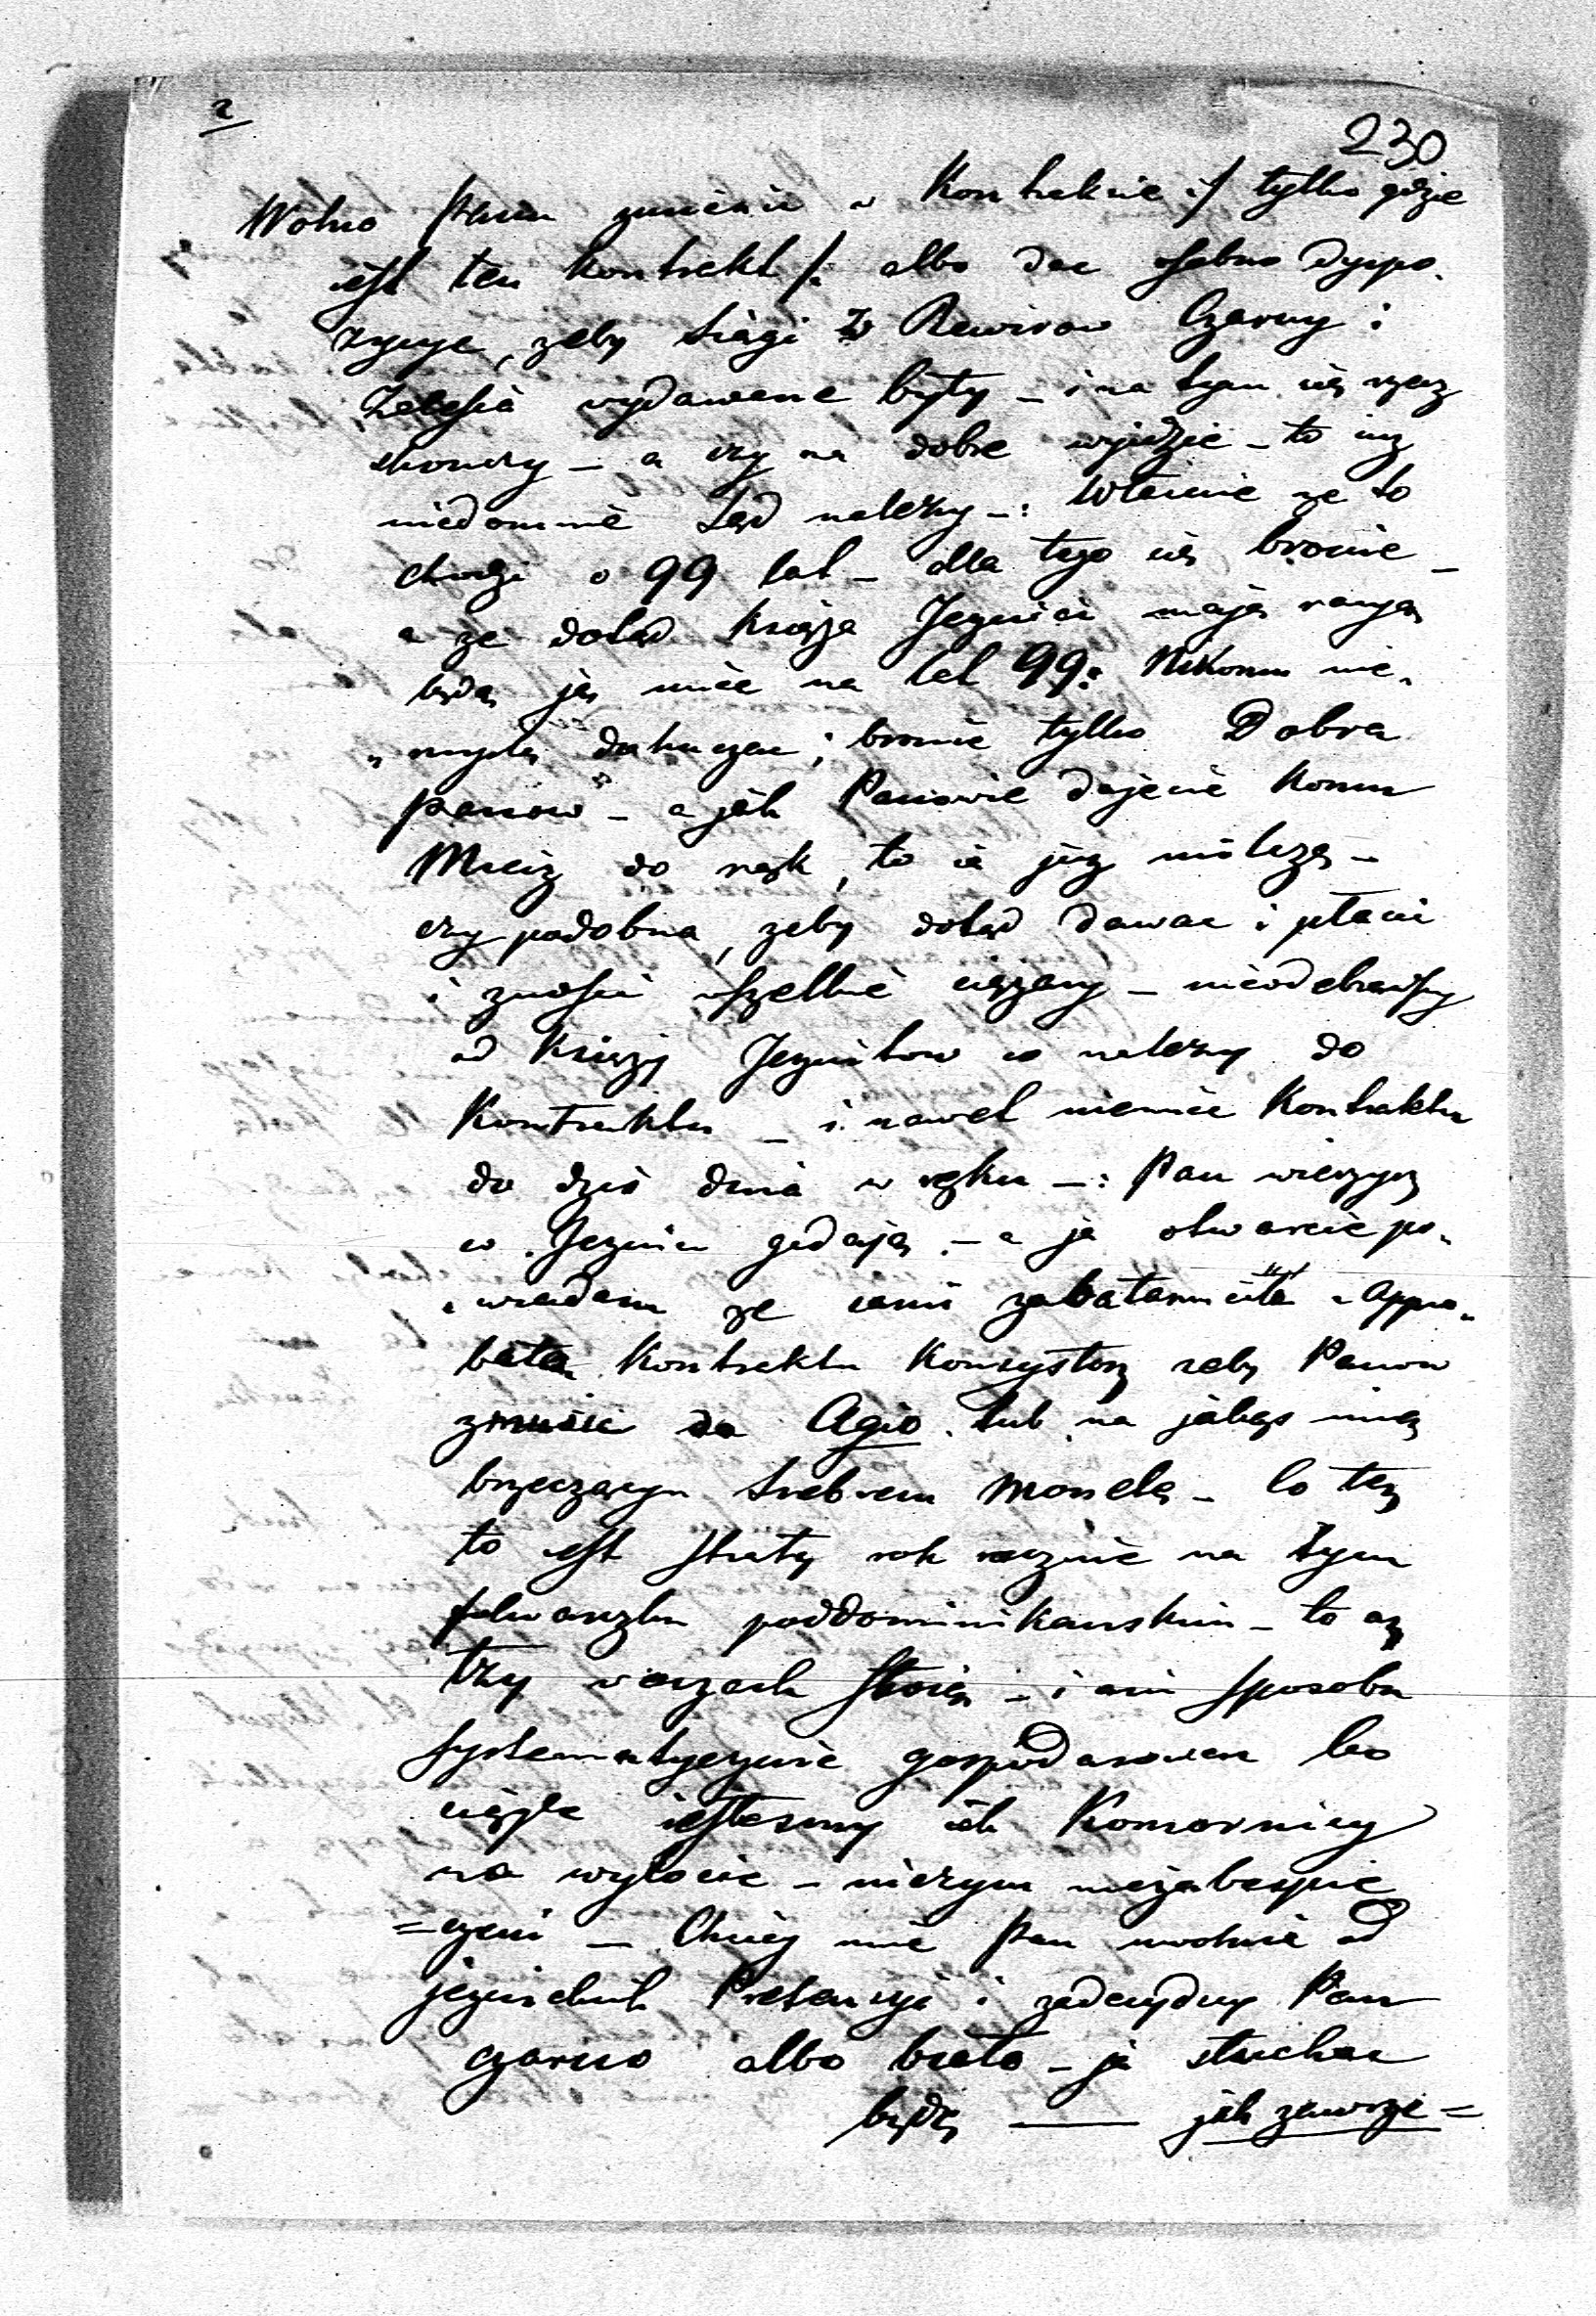 2
230
Wolno Panu zmienić w Kontrakcie :/ tylko gdzie
iest ten kontrakt /: albo dac osobno dyspo-
zycye, zeby siągi z Rewirow Czarny i
Zalesia wydawane były – i na tym się rzecz
skonczy – a czy na dobre wyidzie – to iuz
niedomnie sąd nalezy –: Własnie ze to
chodzi o 99 lat – dla tego się bronie –
a ze dotąd Księza Jezuici mają racyą
będą ją miec na lat 99: Nikomu nie-
„myslę dokuczac ; bronie tylko Dobra
Panow – a jak Panowie dajecie komu
Miecz do rąk, to ia juz milczę –
czy podobna, zeby dotąd dawac i płacic
i znosic wszelkie cięzary – nieodebrawszy
od Księzy Jezuitow co nalezy do
Kontraktu – i nawet niemiec Kontraktu
do dzis dnia w ręku –: Pan wierzysz
co Jezuici gadają – a ja otwarcie po-
„wiadam ze iami zabałamucili appro-
batą Kontraktu Konsystorz zeby Panow
zmusic do Agio lub na jakąs inną
brzęczącym srebrem monetę – Co tez
to iest straty rok rocznie na tym
folwarczku poddominikanskim – to az
łzy w oczach stoią – i ani sposobu
systematycznie gospodarowac bo
ciągle iestesmy iak Komornicy
na wylocie – niczym niezabezpie
=czeni – Chciej mie Pan uwolnic od
jezuickich Pretensyi i zadecyduy Pan
czarno albo biało – ja słuchac
będę —— jak zawsze =